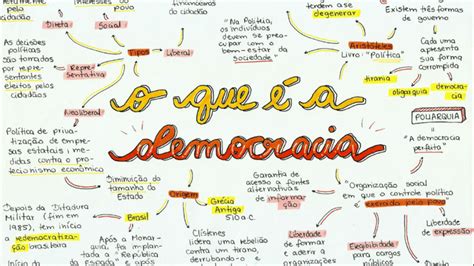 interesses do
cidadão
financeiras
do cidadão
Direta
Social
As decisões
políticas
são tomadas
por repre-
sentantes
eleitos
pelos
cidadãos
Tipos
Liberal
Repre-
sentativa
"Na Política,
os indivíduos
devem se pre-
ocupar com o
bem-estar da
sociedade"
tende a se
degenerar
Existem três
formas de
governo
Aristóteles
Livro: "Política"
Cada uma
apresenta
sua forma
corrompida
tirania
oligarquia
democracia
o que é a
democracia
Neoliberal
Política de priva-
tização de empre-
sas estatais | me-
didas contra o pro-
tecionismo econômico
Diminuição do
tamanho do
Estado
Origem
Grécia
Antiga
510 a.C.
Garantia de
acesso a fontes
alternativas
de infor-
mação
POLIARQUIA
"A democracia
perfeita"
"Organização social
em que o controle político
é exercido pelo povo"
Depois da Ditadura
Militar (fim em
1985), tem início
a redemocratização
brasileira
Brasil
Após a Monar-
quia, foi implan-
tada a "República
da Espada" e após
Clístines
lidera uma rebelião
contra um tirano,
derrubando-o e
Liberdade
de formar
e
Elegibilidade
para cargos
Liberdade
de expressão